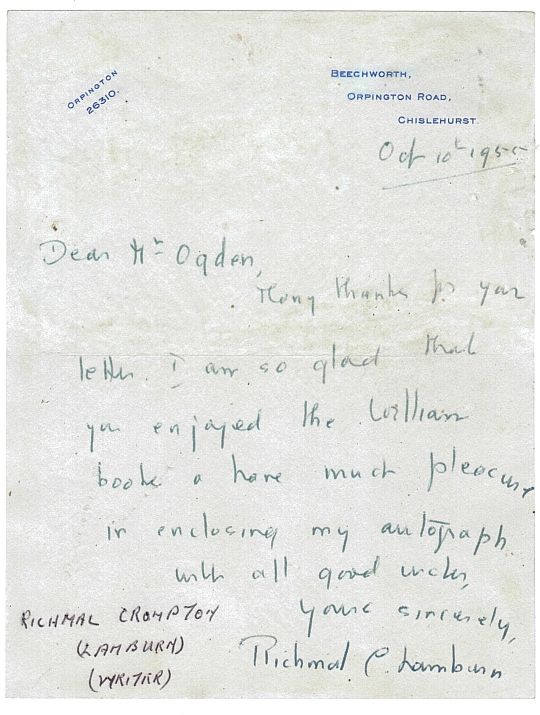 ORPINGTON
26310.
BEECHWORTH,
ORPINGTON ROAD,
CHISLEHURST
Oct 10th 1955
Dear Mr Ogden,
Many thanks for your
letter. I am so glad that
you enjoyed the William
books & have much pleasure
in enclosing my autograph
with all good wishes,
Yours sincerely,
Richmal C. Lamburn
RICHMAL CROMPTON
(LAMBURN)
(WRITER)